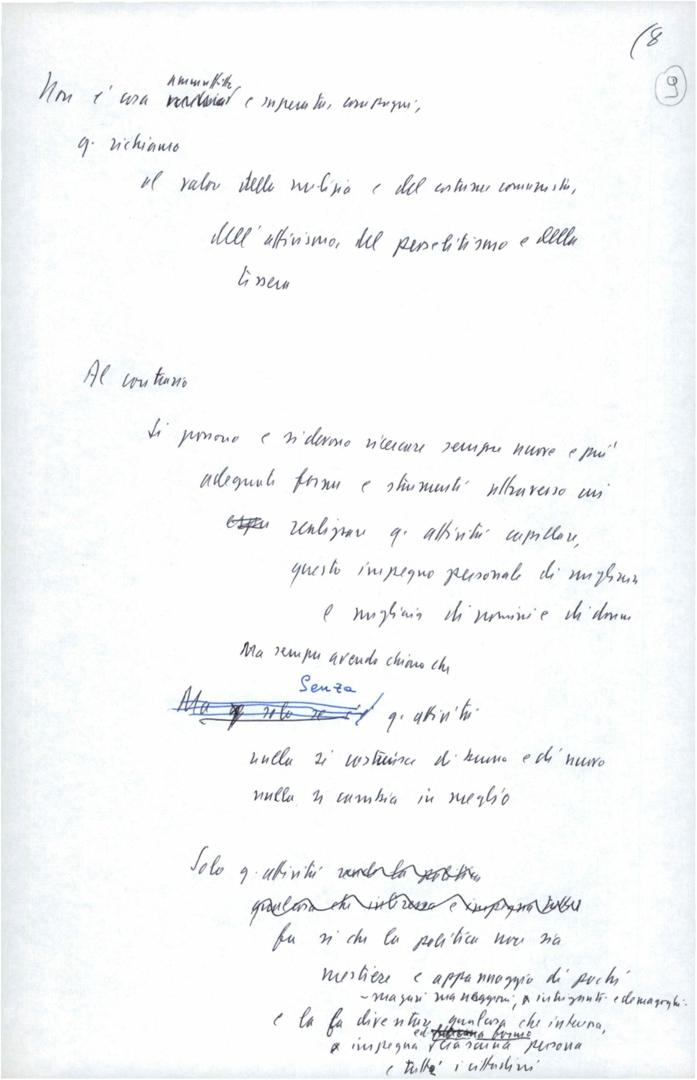 (8
9
ammuffita
Non è cosa e superata, compagni,
q. richiamo
al valore della milizia e del costume comunista,
dell'attivismo, del proselitismo e della
tessera
Al contrario
Si possono e si devono ricercare sempre nuove e più
adeguate forme e strumenti attraverso cui
realizzare q. attività capillare,
questo impegno personale di migliaia
e migliaia di uomini e di donne
Ma sempre avendo chiaro che
Senza
Ma q solo se è q. attività
nulla si costruisce di buono e di nuovo
nulla si cambia in meglio
Solo q. attività rende la politica
qualcosa che interessa e impegna tutti
fa sì che la politica non sia
mestiere e appannaggio di pochi
- magari maneggioni, o intriganti e demagoghi -
e la fa diventare qualcosa che interessa,
ed
e impegna ciascuna persona
e tutti i cittadini